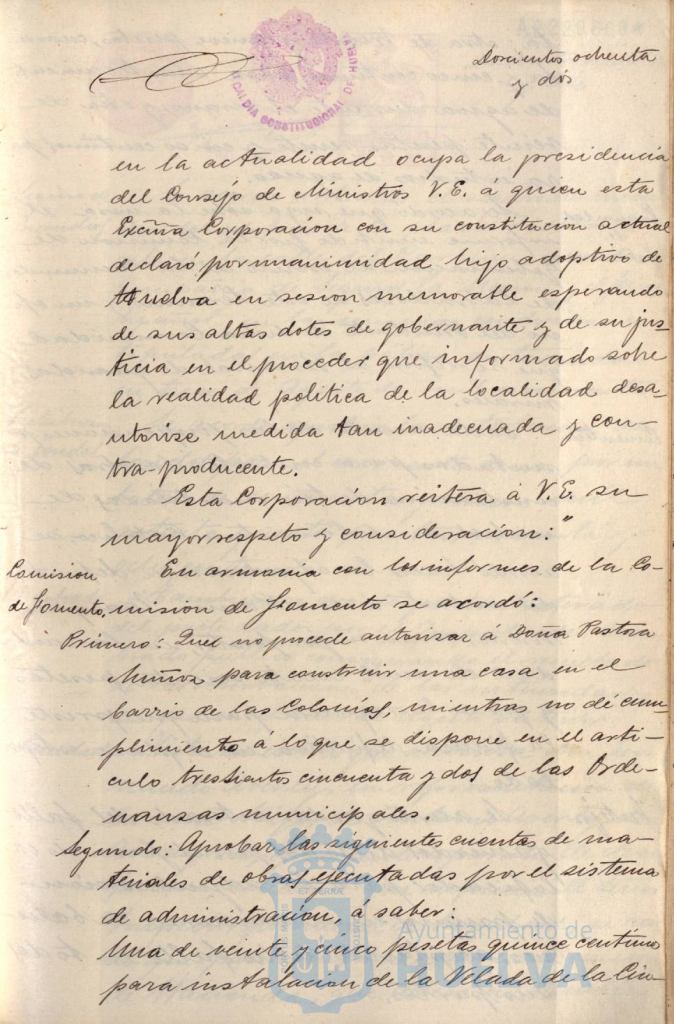 Doscientos ochenta
y dós
ALCALDIA CONSTITUCIONAL DE HUELVA
en la actualidad ocupa la presidencia
del Consejo de Ministros V.E. á quien esta
Excma Corporacion con su constitucion actual
declaró por unanimidad hijo adoptivo de
Huelva en sesion memorable esperando
de sus altas dotes de gobernante y de su jus-
ticia en el proceder que informado sobre
la realidad politica de la localidad desa-
utorise medida tan inadecuada y con-
tra-producente.
Esta Corporacion reitera á V.E. su
mayor respeto y consideracion:"
Comision
de Fomento.
En armonia con los informes de la Co-
mision de Fomento se acordó:
Primero: Que no procede autorizar á Doña Pastora
Muñoz para construir una casa en el
barrio de las Colonias, mientras no dé cum-
plimiento á lo que se dispone en el arti-
culo trescientos cincuenta y dos de las Orde-
nanzas municipales.
Segundo: Aprobar las siguientes cuentas de ma-
teriales de obras ejecutadas por el sistema
de administracion, á saber:
Una de veinte y cinco pesetas quince centimos
para instalacion de la Velada de la Cin-
Ayuntamiento de
HUELVA